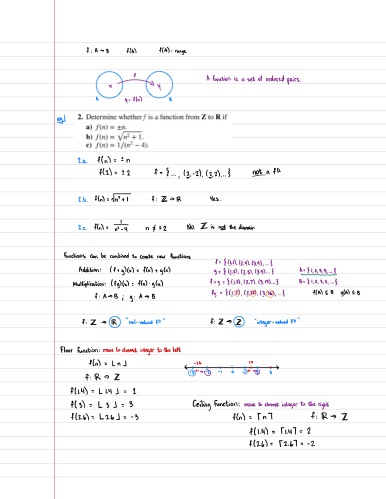 f: A → B    f(a)    f(A): range
A function is a set of ordered pairs.
f
x    y
A    y = f(x)    B
eg/ 2. Determine whether f is a function from Z to R if
a) f(n) = ±n.
b) f(n) = √n² + 1.
c) f(n) = 1/(n² − 4).
2.a. f(n) = ± n
not a f^n
2.b. f(n) = √n²+1    f: Z → R    Yes.
2.c. f(n) = 1/n²-4    n ≠ ± 2    No. Z is not the domain
Functions can be combined to create new functions
Addition: (f+g)(x) = f(x) + g(x)
Multiplication: (fg)(x) = f(x)·g(x)
A = {1,2,3,4, ...}
B = {1,2,3,4, ...}
f: A → B ; g: A → B
f(A) ⊆ B    g(A) ⊆ B
f: Z → R "real-valued f^n"    f: Z → Z "integer-valued f^n"
Floor Function: move to closest integer to the left
f(n) = ⌊n⌋
f: R → Z
f(1.4) = ⌊1.4⌋ = 1
f(3) = ⌊3⌋ = 3
f(-2.6) = ⌊-2.6⌋ = -3
Ceiling Function: move to closest integer to the right
f(n) = ⌈n⌉    f: R → Z
f(1.4) = ⌈1.4⌉ = 2
f(-2.6) = ⌈-2.6⌉ = -2